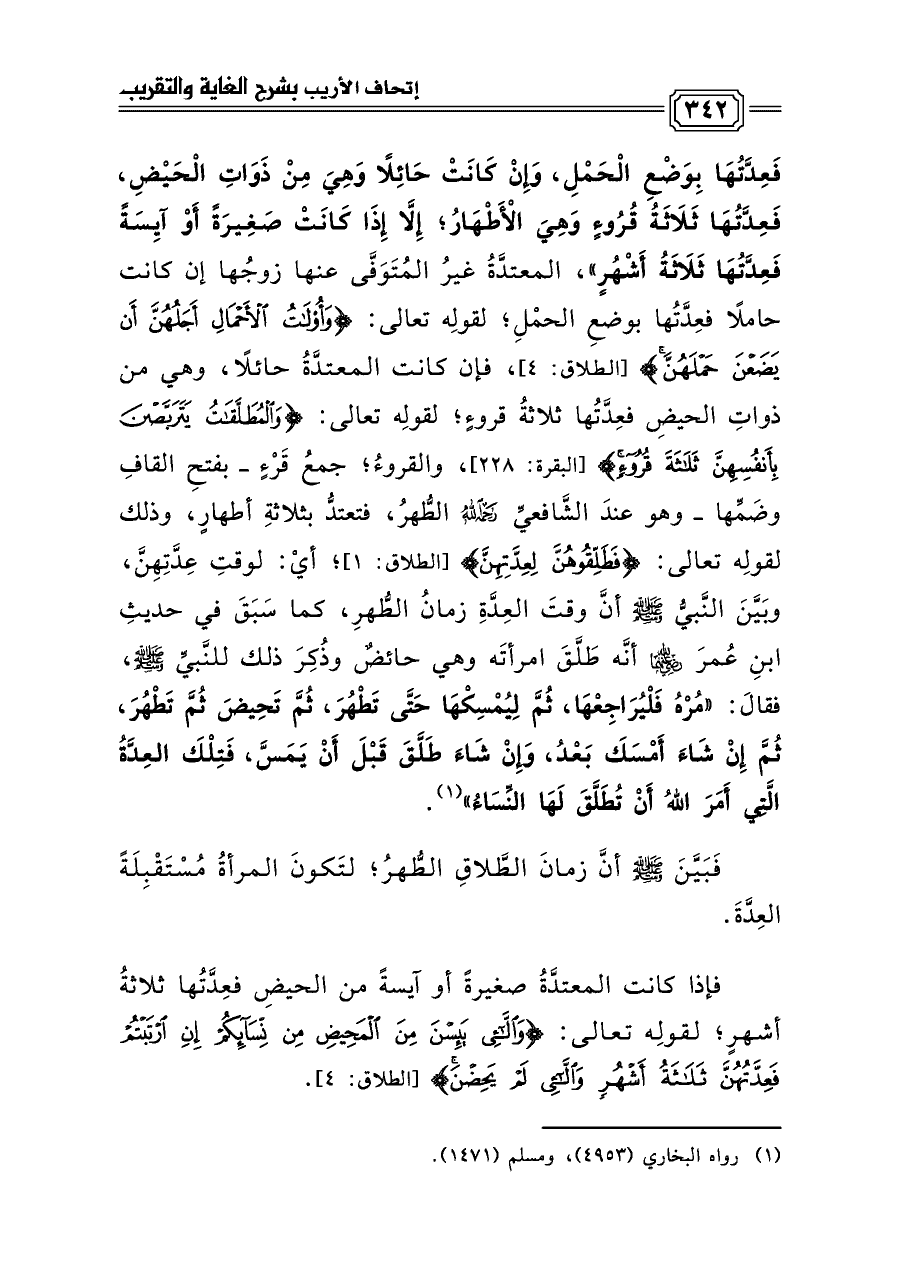 إتحاف الأريب بشرح الغاية والتقريب
٣٤٢
فَعِدَّتُهَا بِوَضْعِ الْحَمْلِ، وَإِنْ كَانَتْ حَائِلًا وَهِيَ مِنْ ذَوَاتِ الْحَيْضِ،
فَعِدَّتُهَا ثَلَاثَةُ قُرُوءٍ وَهِيَ الْأَطْهَارُ؛ إِلَّا إِذَا كَانَتْ صَغِيرَةً أَوْ آيِسَةً
فَعِدَّتُهَا ثَلَاثَةُ أَشْهُرٍ»، المعتدَّةُ غيرُ المُتَوَفَّى عنها زوجُها إن كانت
حاملًا فعِدَّتُها بوضعِ الحمْلِ؛ لقولِه تعالى: ﴿وَأُوْلَٰتُ ٱلْأَحْمَالِ أَجَلُهُنَّ أَن
يَضَعْنَ حَمْلَهُنَّۚ﴾ [الطلاق: ٤]، فإن كانت المعتدَّةُ حائلًا، وهي من
ذواتِ الحيضِ فعِدَّتُها ثلاثةُ قروءٍ؛ لقولِه تعالى: ﴿وَٱلْمُطَلَّقَٰتُ يَتَرَبَّصْنَ
بِأَنفُسِهِنَّ ثَلَٰثَةَ قُرُوٓءٍۚ﴾ [البقرة: ٢٢٨]، والقروءُ؛ جمعُ قَرْءٍ ـ بفتحِ القافِ
وضَمِّها ـ وهو عندَ الشَّافعيِّ رَحِمَهُ اللهُ الطُّهرُ، فتعتدُّ بثلاثةِ أطهارٍ، وذلك
لقولِه تعالى: ﴿فَطَلِّقُوهُنَّ لِعِدَّتِهِنَّ﴾ [الطلاق: ١]؛ أيْ: لوقتِ عِدَّتِهِنَّ،
وبَيَّنَ النَّبيُّ ﷺ أنَّ وقتَ العِدَّةِ زمانُ الطُّهرِ، كما سَبَقَ في حديثِ
ابنِ عُمرَ رضي الله عنهما أنَّه طَلَّقَ امرأتَه وهي حائضٌ وذُكِرَ ذلك للنَّبيِّ ﷺ،
فقالَ: «مُرْهُ فَلْيُرَاجِعْهَا، ثُمَّ لِيُمْسِكْهَا حَتَّى تَطْهُرَ، ثُمَّ تَحِيضَ ثُمَّ تَطْهُرَ،
ثُمَّ إِنْ شَاءَ أَمْسَكَ بَعْدُ، وَإِنْ شَاءَ طَلَّقَ قَبْلَ أَنْ يَمَسَّ، فَتِلْكَ العِدَّةُ
الَّتِي أَمَرَ اللهُ أَنْ تُطَلَّقَ لَهَا النِّسَاءُ»(١).
فَبَيَّنَ ﷺ أنَّ زمانَ الطَّلاقِ الطُّهرُ؛ لتَكونَ المرأةُ مُسْتَقْبِلَةً
العِدَّةَ.
فإذا كانت المعتدَّةُ صغيرةً أو آيسةً من الحيضِ فعِدَّتُها ثلاثةُ
أشهرٍ؛ لقولِه تعالى: ﴿وَٱلَّٰٓـِٔي يَئِسْنَ مِنَ ٱلْمَحِيضِ مِن نِّسَآئِكُمْ إِنِ ٱرْتَبْتُمْ
فَعِدَّتُهُنَّ ثَلَٰثَةُ أَشْهُرٍ وَٱلَّٰٓـِٔي لَمْ يَحِضْنَۚ﴾ [الطلاق: ٤].
(١) رواه البخاري (٤٩٥٣)، ومسلم (١٤٧١).